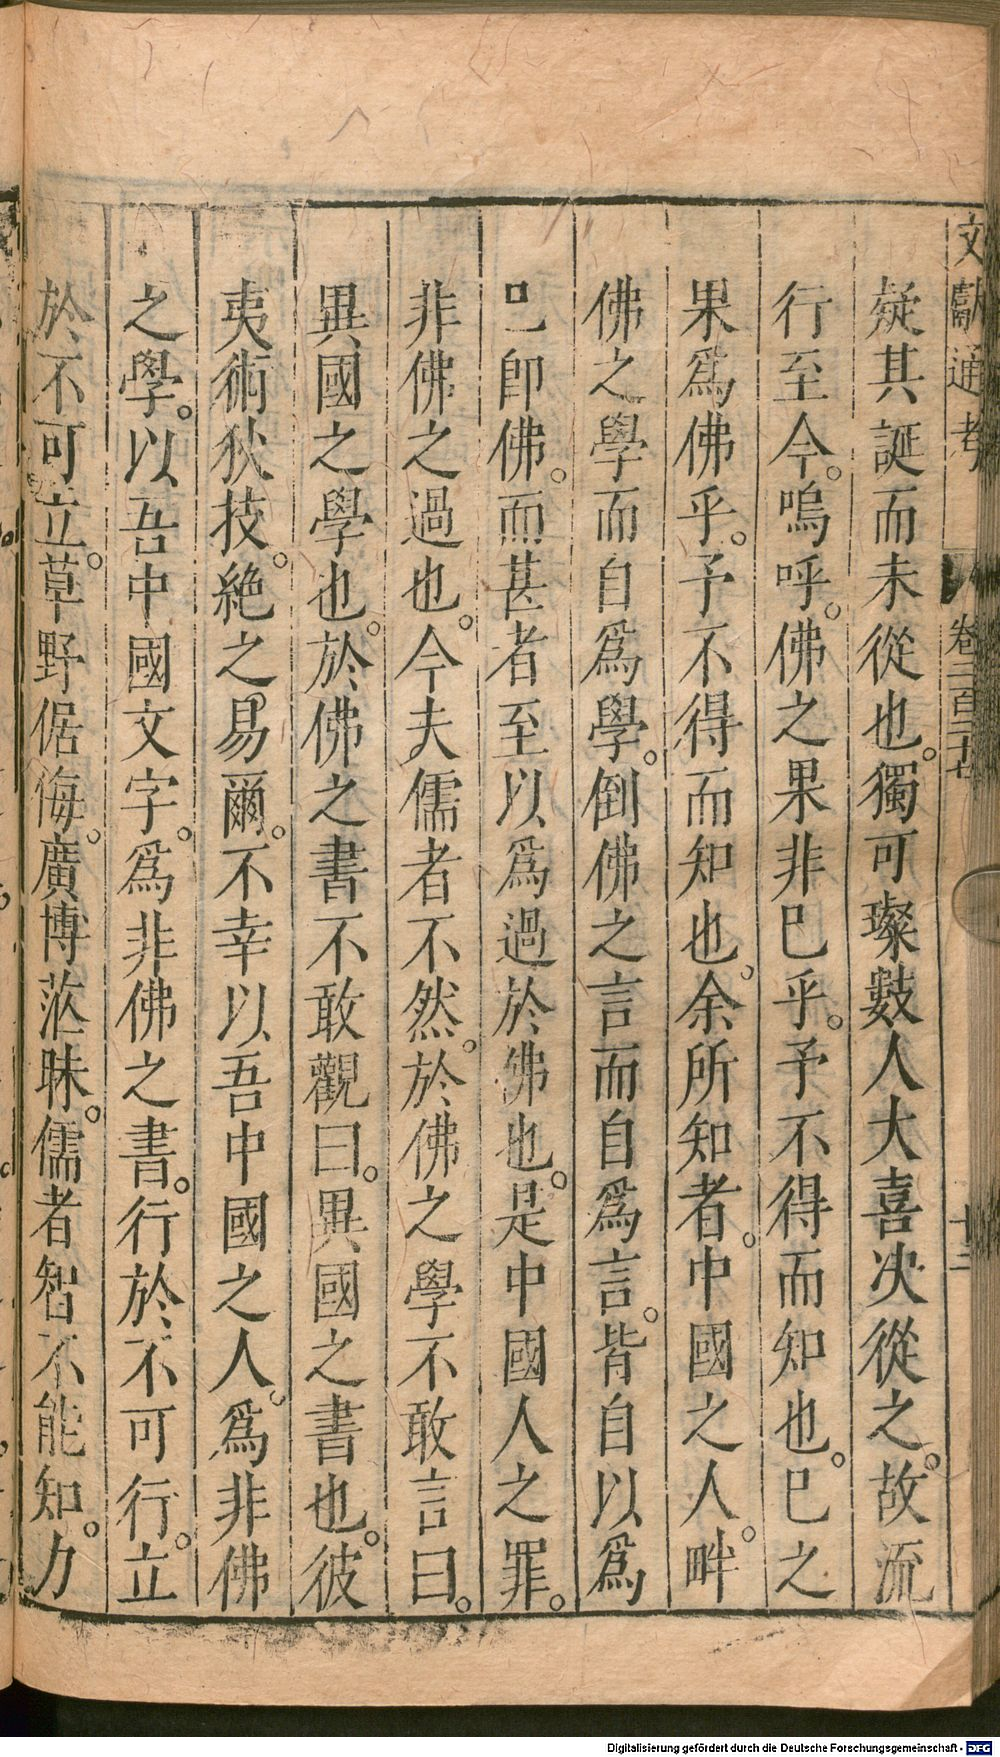 文獻通考
卷二百二十七
十三
疑其誕而未從也。獨可璨數人大喜决從之。故流
行至今。嗚呼。佛之果非巳乎。予不得而知也。巳之
果爲佛乎。予不得而知也。余所知者。中國之人。畔
佛之學而自爲學。倒佛之言而自爲言。皆自以爲
巳卽佛。而甚者至以爲過於佛也。是中國人之罪。
非佛之過也。今夫儒者不然。於佛之學不敢言曰。
異國之學也。於佛之書不敢觀曰。異國之書也。彼
夷術狄技。絶之易爾。不幸以吾中國之人。爲非佛
之學。以吾中國文字。爲非佛之書。行於不可行。立
於不可立。草野倨侮。廣博茫昧。儒者智不能知。力
Digitalisierung gefördert durch die Deutsche Forschungsgemeinschaft - DFG